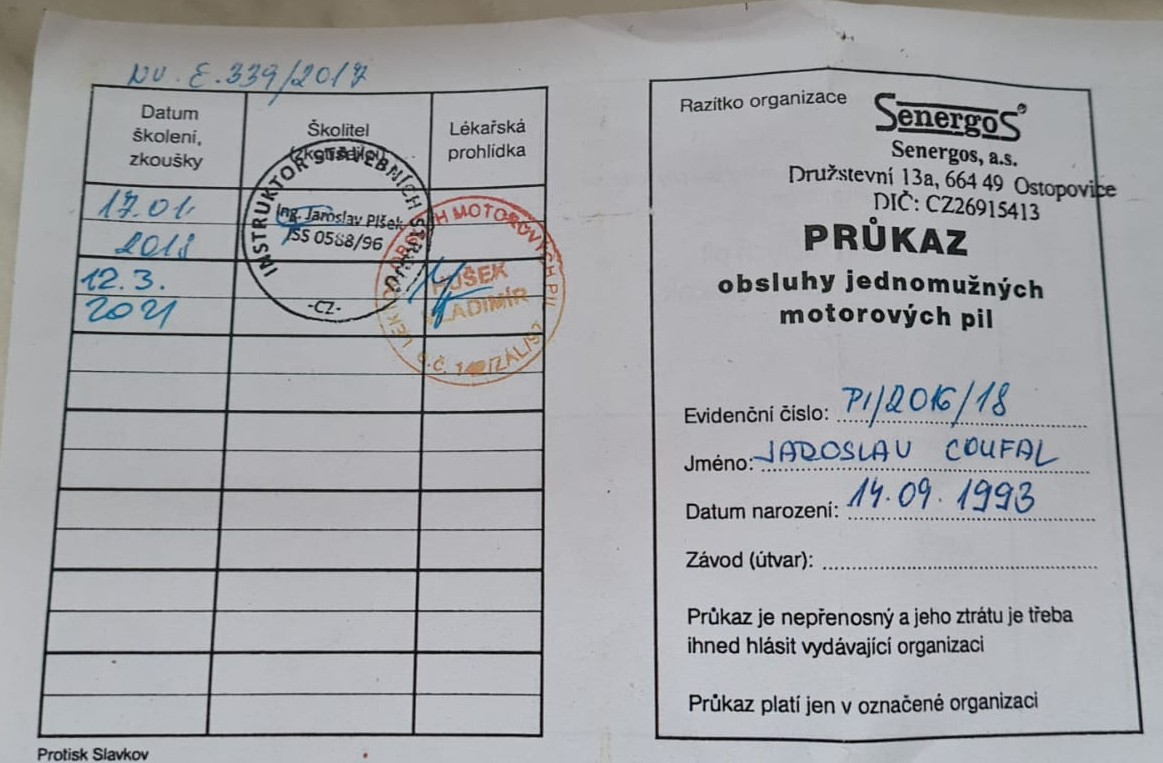 NV. č. 339/2017
Datum školení, zkoušky
Školitel (zkoušející)
Lékařská prohlídka
17.01. 2018
12.3. 2021
INSTRUKTOR STAVEBNÍCH STROJŮ
Ing. Jaroslav Plšek
ISS 0588/96
-CZ-
MOTOROVÝCH PIL
VLADIMÍR
Protisk Slavkov
Razítko organizace
Senergos®
Senergos, a.s.
Družstevní 13a, 664 49 Ostopovice
DIČ: CZ26915413
PRŮKAZ
obsluhy jednomužných
motorových pil
Evidenční číslo: PI/2016/18
Jméno: JAROSLAV COUFAL
Datum narození: 14.09.1993
Závod (útvar):
Průkaz je nepřenosný a jeho ztrátu je třeba
ihned hlásit vydávající organizaci
Průkaz platí jen v označené organizaci